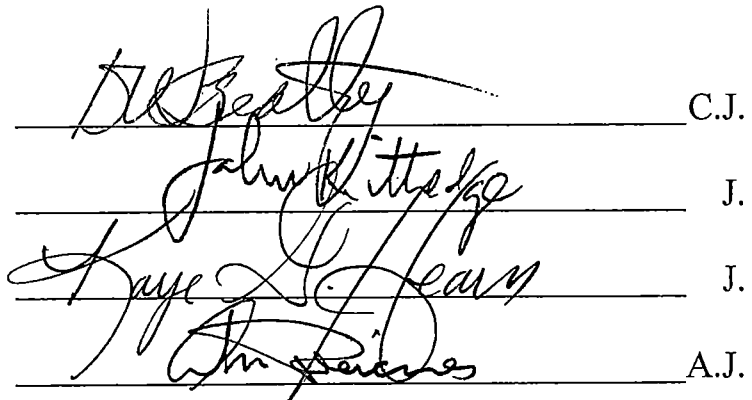 DW Beatty C.J.
John Kittredge J.
Kaye G. Hearn J.
A.J.